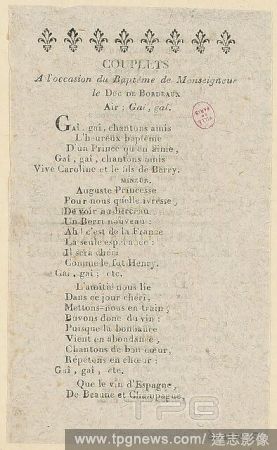 COUPLETS
A l'occasion du Baptême de Monseigneur
le DUC DE BORDEAUX
Air : Gai, gai.
Gai, gai, chantons amis
L'heureux baptême
D'un Prince qu'on aime,
Gai, gai, chantons amis
Vive Caroline et le fils de Berry.
MINEUR.
Auguste Princesse
Pour nous quelle ivresse,
De voir au berceau
Un Berri nouveau :
Ah ! c'est de la France
La seule espérance :
Il sera chéri
Comme le fut Henry.
Gai, gai, etc.
L'amitié nous lie
Dans ce jour chéri,
Mettons-nous en train ;
Buvons donc du vin ;
Puisque la bombance
Vient en abondance,
Chantons de bon cœur,
Répétons en chœur :
Gai, gai, etc.
Que le vin d'Espagne,
De Beaune et Champagne,
TPG
www.tpgnews.com/達志影像